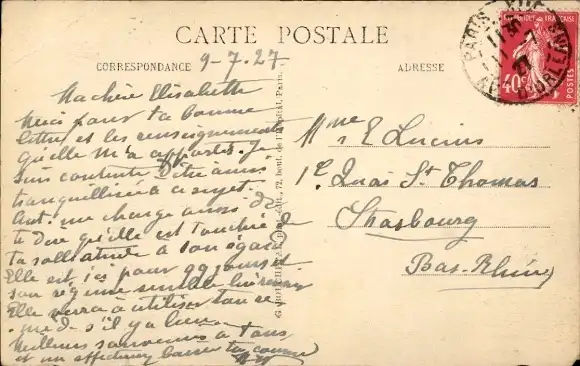 CARTE POSTALE
CORRESPONDANCE
ADRESSE
9-7.27
Ma chère Elisabette
Merci pour ta bonne
lettre et les renseignements
qu'elle m'a apportés. Je
suis contente d'être ainsi
tranquillisée à ce sujet.
me charge aussi de
te dire qu'elle est touchée de
ta sollicitude à son égard
Elle est ici pour qq jours et
son régime semble
Elle verra à utiliser ton re-
mède s'il y a lieu
Meilleurs souvenirs à tous
et un affectueux baiser ta
Mme E Lucius
1 Quai St Thomas
Strasbourg
Bas-Rhin
72, boul. de l'Hôpital, Paris.
PARIS
REPUBLIQUE FRANÇAISE
40c
POSTES